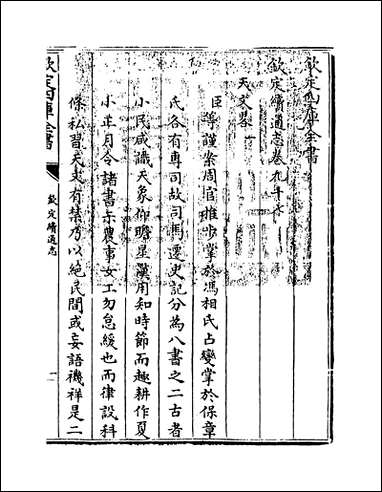 欽定四庫全書
欽定續通志卷九十
天文畧
臣等謹案周官推步掌於馮相氏占變掌於保章
氏各有專司故司馬遷史記分為八書之二古者
小民咸識天象仰瞻星漢用知時節而趣耕作夏
小正月令諸書示農事女工勿怠緩也而律設科
條私習天文有禁乃以絶民間或妄語禨祥是二
欽定四庫全書
欽定續通志